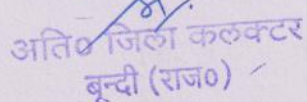 अति० जिला कलक्टर
बून्दी (राज०)